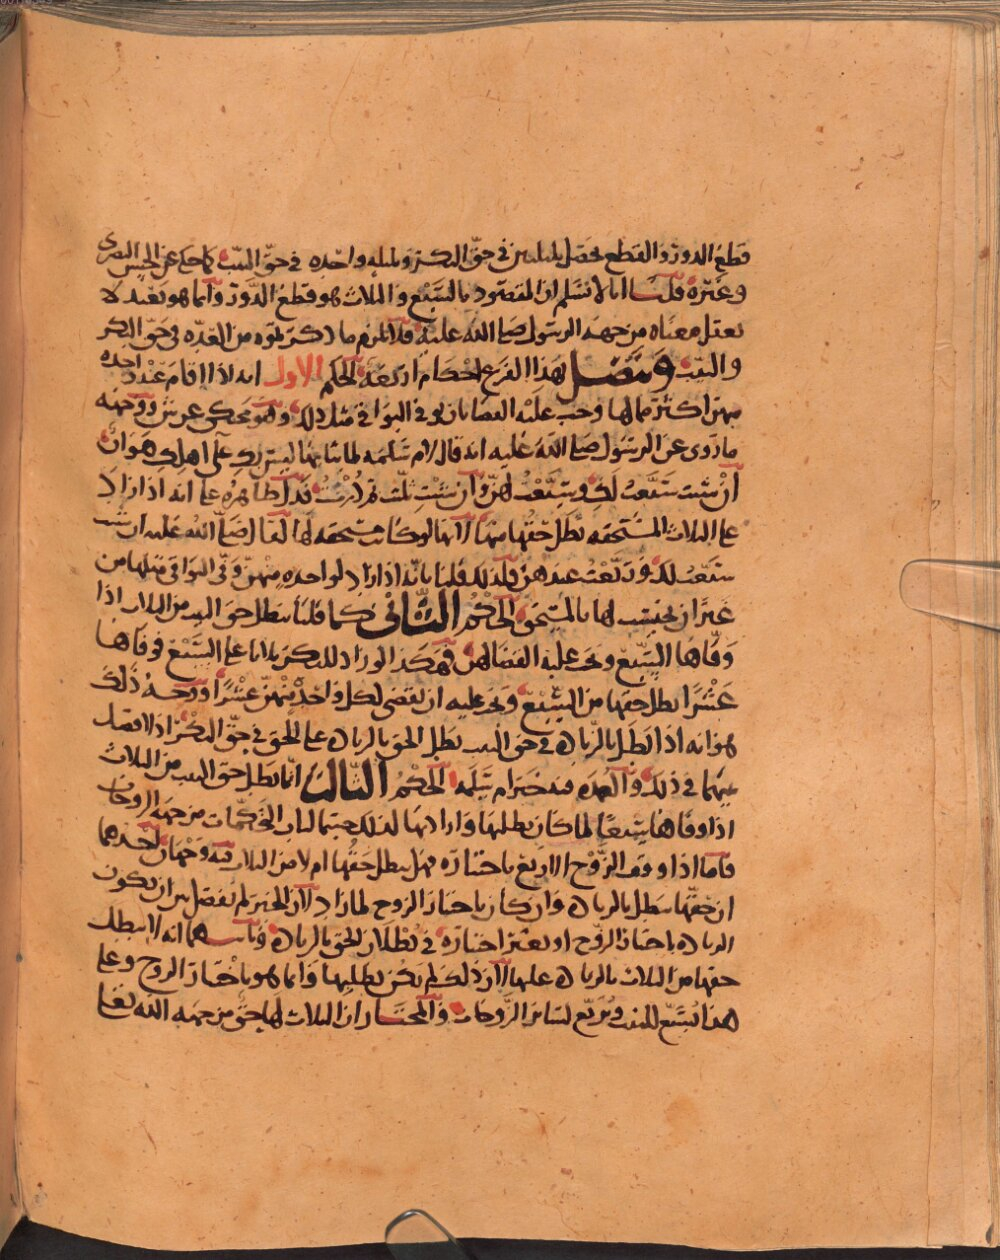 قطع الدور والقطع يحصل بليلتين في حق البكر وبليله واحده في حق الثيب كما حكي عن الحسن البصري
وغيره قلنا انا لا نسلم ان المقصود بالسبع والثلاث هو قطع الدور وانما هو تعبد لا
نعقل معناه من جهه الرسول صلى الله عليه فلا يلزم ما ذكرتموه من العده في حق البكر
والثيب ويتصل بهذا الفرع احكام اربعة الحكم الاول انه لاذا اقام عند احده
منهن اكثر مما لها وجب عليه القضا بان يوفي البواقي مثل ذلك وهو محكي عن ش ووجهه
ما روى عن الرسول صلى الله عليه انه قال لام سلمه لما بنا بها ليس بك على اهلك هوان
ان شئت سبعت لك وسبعت لهن وان شئت ثلثت ثم درت فدل ظاهره على انه اذا زاد
على الثلاث المستحقه بطل حقها منها لانها لو كانت مستحقه لها لقال صلى الله عليه ان شئت
سبعت لك وربعت عندهن فلذلك قلنا بانه اذا زاد لواحده منهن وفى البواقي مثلها من
غير ان يحتسب لها بالمستحق الحكم الثاني كما قلنا يبطل حق الثيب من الثلاث اذا
وفاها السبع وجب عليه القضا لهن فهكذا لو زاد للبكر بلياا على السبع فوفاها
عشرا بطل حقها من السبع وجب عليه ان يقضى لكل واحده منهن عشرا ووجه ذلك
هو انه اذا بطل بالزياده في حق الثيب بطل الحق بالزياده على الحق في حق البكر اذ لا فصل
بينهما في ذلك والعمده فيه خبر ام سلمه الحكم الثالث انما بطل حق الثيب من الثلاث
اذا وفاها سبعا لما كان بطلبها وارادتها لذلك حسما لباب التحكمات من جهه الزوجات
فاما اذا وقف الزوج الاربع باختياره فهل يبطل حقها ام لا من الثلاث فيه وجهان احدهما
ان حقها يبطل بالزياده وان كان باختيار الزوج لما زاد لان الخبر لم يفصل بين ان يكون
الزياده باختيار الزوج او بغير اختياره في بطلان الحق بالزياده وثانيهما انه لا يبطل
حقها من الثلاث بالزياده عليها لان ذلك لم يكن بطلبها وانما هو باختيار الزوج وعلى
هذا يسبع للثيب ويربع لسائر الزوجات والمختار ان الثلاث لها حق من جهه الله تعالى